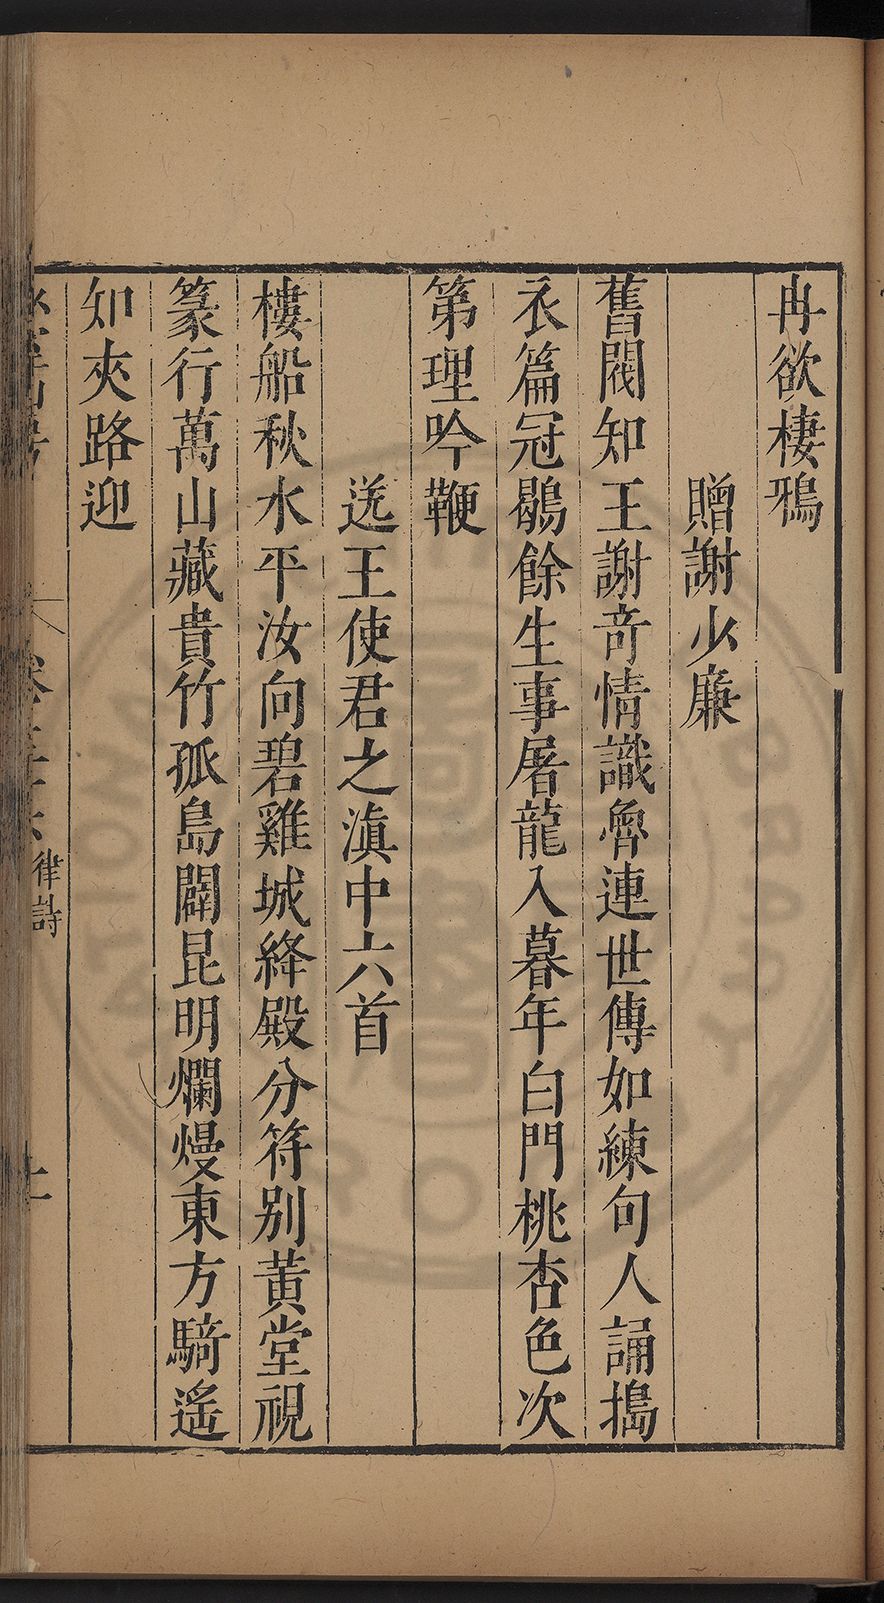 冉欲棲鴉
贈謝少廉
舊閥知王謝奇情識魯連世傳如練句人誦搗
衣篇冠鶡餘生事屠龍入暮年白門桃杏色次
第理吟鞭
送王使君之滇中六首
樓船秋水平汝向碧雞城絳殿分符别黃堂視
篆行萬山藏貴竹孤島闢昆明爛熳東方騎遙
如夾路迎
律詩